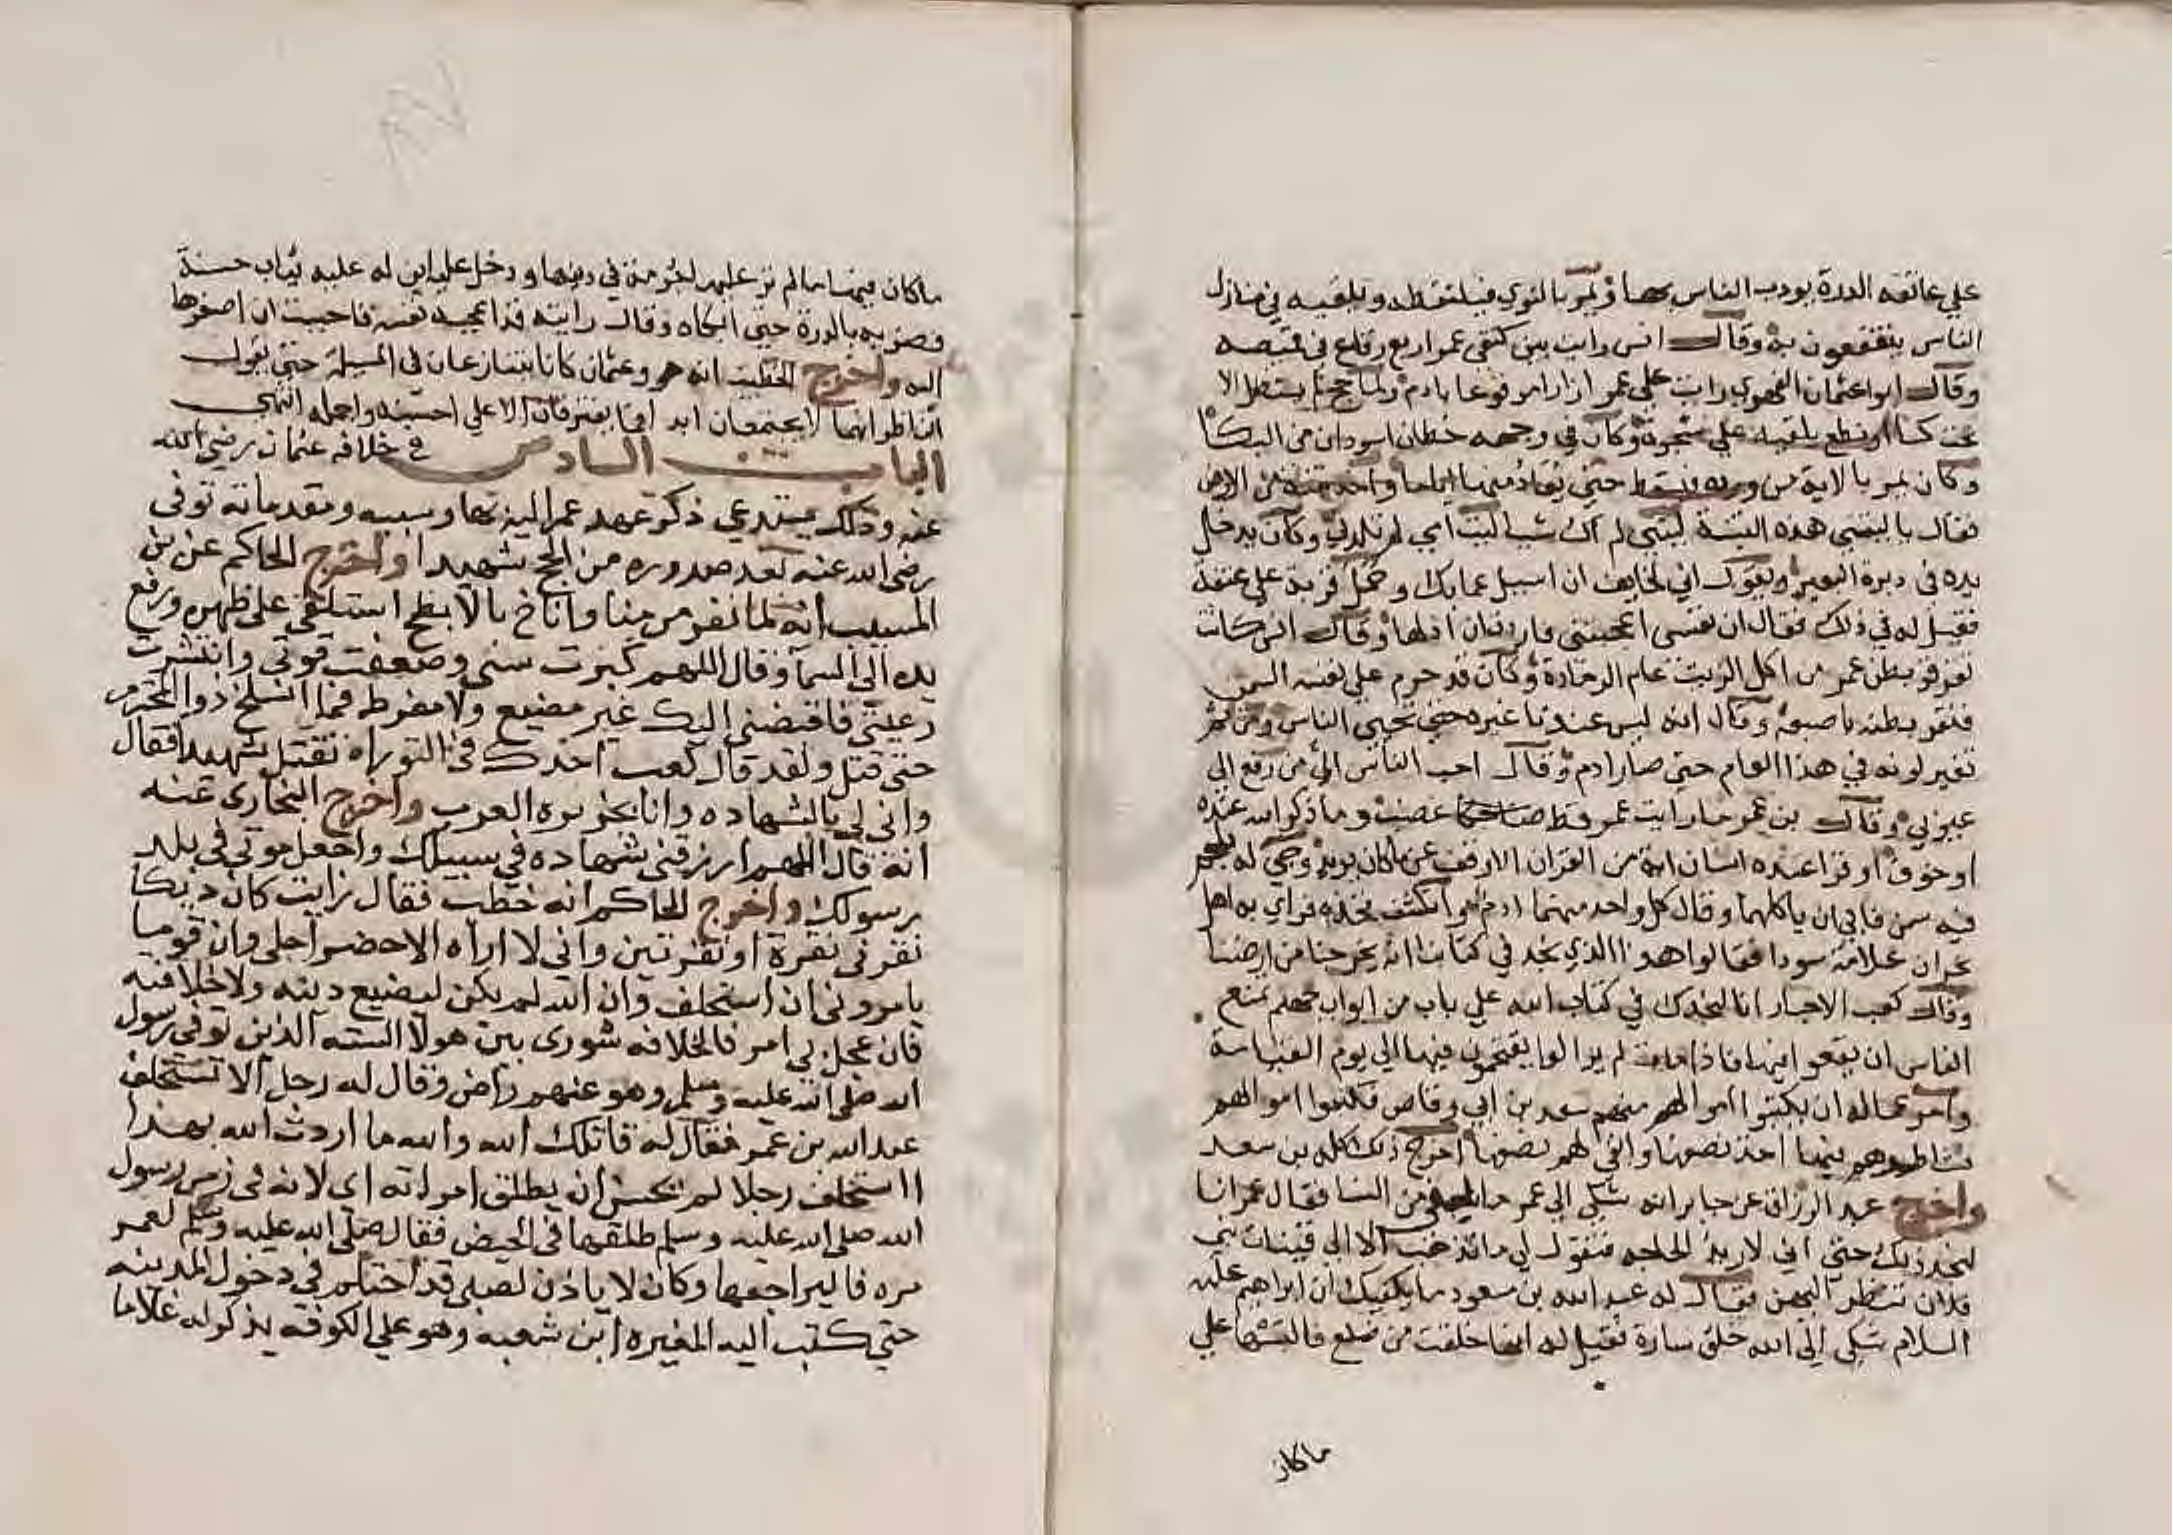 علي عاتقه الدرة يودب الناس بها ويمر بالنوي فيلتقطه ويلقيه في منازل
الناس ينتفعون به وقال انس رايت بين كتفي عمر اربع رقاع في قميصه
وقال ابو عثمان النهدي رايت علي عمر ازارا مرفوعا بادم ولما حج لم يستظل الا
تحت كسا او نطع يلقيه علي شجرة وكان في وجهه خطان اسودان من البكا
وكان يمر بالاية من ورده فيسقط حتي يعاد منها اياما واخذ تبنة من الارض
فقال يا ليتني هذه التبنة ليتني لم اك شيا ليت امي لم تلدني وكان يدخل
يده في دبرة البعير ويقول اني لخايف ان اسيل عما بك وحمل قربة علي عنقه
فقيل له في ذلك فقال ان نفسي اعجبتني فاردت ان اذلها وقال انس كانت
تقرقر بطن عمر من اكل الزيت عام الرمادة وكان قد حرم علي نفسه السمن
فنقر بطنه باصبعه وقال انه ليس عندنا غيره حتي تحيي الناس ومن ثم
تغير لونه في هذا العام حتي صار ادم وقال احب الناس الي من رفع الي
عيوبي وقال بن عمر ما رايت عمر قط غضب وما ذكر الله عنده
او خوف او قرا عنده انسان اية من القران الا وقف عن ما كان يريد وجي له بلحم
فيه سمن فابي ان ياكلهما وقال كل واحد منهما ادم وانكشف فخذه فراي به اهل
نجران علامة سودا فقالوا هذا الذي نجد في كتابنا انه يخرجنا من ارضنا
وقال كعب الاحبار انا لنجدك في كتاب الله علي باب من ابواب جهنم تمنع
الناس ان يقعوا فيها فاذا مت لم يزالوا يقتحمون فيها الي يوم القيامة
وامر عماله ان يكتبوا اموالهم منهم سعد بن ابي وقاص فكتبوا اموالهم
فشاطرهم فيها اخذ نصفها وابقي لهم نصفها اخرج ذلك كله بن سعد
واخرج عبد الرزاق عن جابر انه شكي الي عمر ما يلقي من النسا فقال عمر انا
لنجد ذلك حتي اني لاريد الحاجه فتقول لي ما تذهب الا الي فتيات بني
فلان تنظر اليهن فقال له عبد الله بن مسعود ما يكفيك ان ابراهيم عليه
السلام شكي الي الله خلق سارة فقيل له انها خلقت من ضلع فالبسها علي
ما كان
ما كان فيها ما لم تر عليها خربة في دينها ودخل عليه ابن له عليه ثياب حسنة
فضربه بالدرة حتي ابكاه وقال رايته قد اعجبته نفسه فاحببت ان اصغرها
اليه واخرج الخطيب انه هو وعثمان كانا يتنازعان في المسيلة حتي يقول
الناظر انهما لا يجتمعان ابدا فما يفترقان الا علي احسنه واجمله انتهي
الباب السادس في خلافه عثمان رضي الله
عنه وذلك يستدعي ذكر عهد عمر اليه بها وسببه ومقدماته توفي
رضي الله عنه بعد صدوره من الحج شهيدا واخرج الحاكم عن بن
المسيب انه لما نفر من منا واناخ بالابطح استلقي علي ظهره ورفع
يده الي السما وقال اللهم كبرت سني وضعفت قوتي وانتشرت
رعيتي فاقبضني اليك غير مضيع ولا مفرط فما انسلخ ذوا الحجة
حتي قتل ولقد قال كعب اجدك في التوراه تقتل شهيدا فقال
واني لي بالشهاده وانا بجزيره العرب واخرج البخاري عنه
انه قال اللهم ارزقني شهاده في سبيلك واجعل موتي في بلد
رسولك واخرج الحاكم انه خطب فقال رايت كان ديكا
نقرني نقرة او نقرتين واني لا اراه الا حضر اجلي وان قوما
يامروني ان استخلف وان الله لم يكن ليضيع دينه ولا خلافته
فان عجل لي امر فالخلافه شوري بين هولا السته الذين توفي رسول
الله صلي الله عليه وسلم وهو عنهم راض وقال له رجل الا تستخلف
عبد الله بن عمر فقال له قاتلك الله والله ما اردت الله بهذا
ااستخلف رجلا لم يحسن ان يطلق امراته اي لانه في زمن رسول
الله صلي الله عليه وسلم طلقها في الحيض فقال صلي الله عليه وسلم لعمر
مره فاليراجعها وكان لا ياذن لصبي قد احتلم في دخول المدينه
حتي كتب اليه المغيره ابن شعبه وهو علي الكوفه يذكر له غلاما